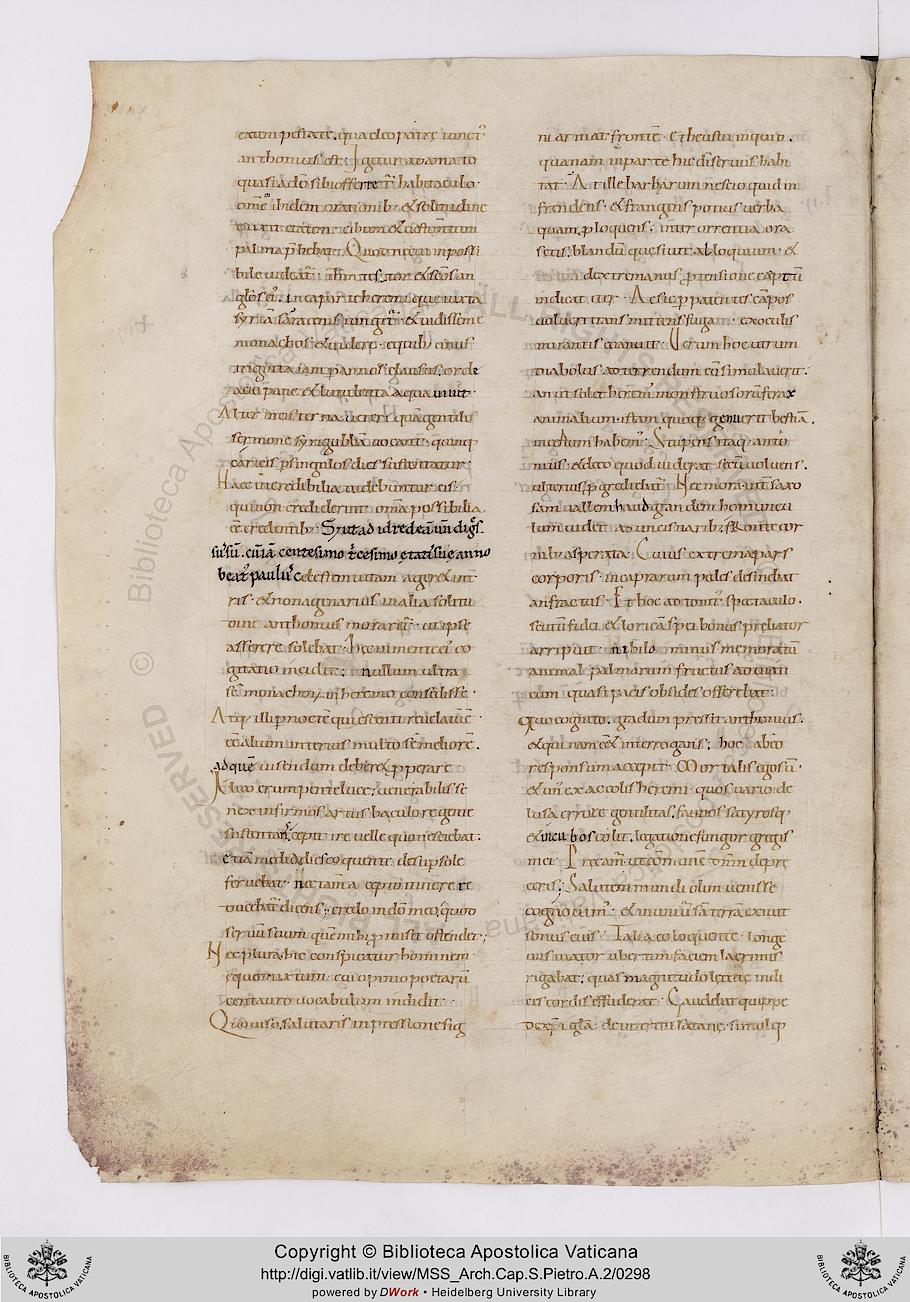 ea tempestate, qua cleopatrę iunct᷑
anthonius est; Igitur adamato
quasi a dō sibi offerret᷑ habitaculo.
omē ibidem orationib; & solitudine
duxit etatem. cibum & uestimtum
palma p̄bebat. Quod ne cui inpossi
bile uideat᷑. ihm testor & scōs an
glōs ei᷑. in ea parte heremi que iuxta
syriā saracenis iungit᷑. & uidisse me
monachos & uidere. e quib; unus
triginta iam p annos clausus. orde
aceo pane & lutulenta aqua uiuit.
Alter in cisterna ueteri quā gentili
sermone syri gubbā uocant. quinq;
caricis p singulos dies sustentatur.
Haec incredibilia uidebuntur eis.
qui non crediderint omīa possibilia
eē credentib; Sed ut ad id redeā un̄ digs
sus sū. cū iā centesimo t̄cesimo ętatis suę anno
beat᷑ paulus cęlestem uitam ageret in t᷑
ris. & nonagenarius in alia solitu
dine anthonius moraret᷑. ut ipse
asserere solebat. Hec in mente ei᷑ co
gitatio incidit; nullum ultra
se monachoꝝ in heremo consedisse.
Atq; illi p noctem quiescenti reuelatū ē
eē alium interius multo se meliorē.
ad quē uisendum deberet pperare.
Ilico erumpente luce; uenerabilis se
nex infirmos artus baculo regente
sustentans. cepit ire uelle quo nesciebat.
& iā media dies coquente desup sole
feruebat. Nec tam a cepto itinere re
ducebat᷑ dicens; credo in dō meo, quod
seruū suum quem mihi pmisit ostendet;
Nec plura. hic conspicatur hominem
equo mixtum. cui opinio poetarū
centauro uocabulum indidit.
Quo uiso. salutaris inpressione sig
ni armat frontē. & heus tu inquid.
quanam in parte hic dī seruus habi
tat. At ille barbarum nescio quid in
frendens. & frangens potius uerba
quam ploquens. inter orrentia ora
setis. blandū quęsiuit alloquium. &
dextre manus ptensione cuptū
indicat iter. Ac sic p patentes cāpos
uolucri transmittens fugam. ex oculis
mirantis euanuit. Uerum hoc utrum
diabolus ad terrendum eū simulauerit.
an ut solet herem᷑ monstruosorū ferax
animalium. istam quoq; genuerit bestiā.
incertum habem᷑. Stupens itaq; anto
nius. & de eo quod uiderat secū uoluens.
ulterius pgrediebat᷑. Nec mora int᷑ saxo
sam uallem haud grandem homuncu
lum uidet. aduncis narib; & fronte cor
nib; asperata. Cuius extrema pars
corporis. in caprarum pedes desinebat
anfractus. Et hoc adtonit᷑ spectaculo.
scutū fidei & loricā spei bonus preliator
arripuit. nihilo minus memoratū
animal palmarum fructus ad uiati
cum quasi pacis obsides offerebat.
Quo cognito. gradum pressit anthonius.
& qui nam eēt interrogans; hoc ab eo
responsum accepit. Mortalis ego sū.
& un᷑ ex accolis heremi. quos uario de
lusa errore gentilitas. faunos satyrosq;
& incubos colit. legatione fungor gregis
mei. Precam᷑. ut comunē dn̄m depre
ceris; Salutem mundi olim uenisse
cognouim᷑. & in uniuersā terrā exiuit
sonus eius. Talia eo loquente. longe
uus uiator ubertim faciem lacrimis
rigabat. quas magnitudo letitię indi
ces cordis effuderat. Gaudebat quippe
de xp̄i gła. de interitu satanę. simulq;
Copyright © Biblioteca Apostolica Vaticana
http://digi.vatlib.it/view/MSS_Arch.Cap.S.Pietro.A.2/0298
powered by DWork • Heidelberg University Library